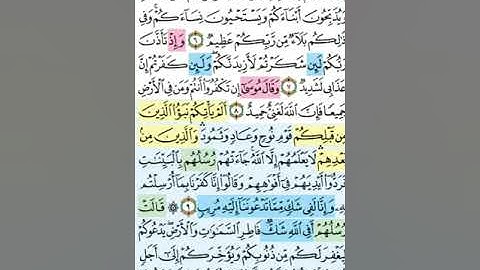 يُذَبِّحُونَ أَبْنَآءَكُمْ وَيَسْتَحْيُونَ نِسَآءَكُمْ وَفِي
ذَٰلِكُم بَلَآءٌ مِّن رَّبِّكُمْ عَظِيمٌ ٦ وَإِذْ تَأَذَّنَ
رَبُّكُمْ لَئِن شَكَرْتُمْ لَأَزِيدَنَّكُمْ وَلَئِن كَفَرْتُمْ إِنَّ
عَذَابِي لَشَدِيدٌ ٧ وَقَالَ مُوسَىٰٓ إِن تَكْفُرُوٓاْ أَنتُمْ وَمَن فِي ٱلْأَرْضِ
جَمِيعًا فَإِنَّ ٱللَّهَ لَغَنِيٌّ حَمِيدٌ ٨ أَلَمْ يَأْتِكُمْ نَبَؤُاْ ٱلَّذِينَ
مِن قَبْلِكُمْ قَوْمِ نُوحٍ وَعَادٍ وَثَمُودَ وَٱلَّذِينَ مِنۢ
بَعْدِهِمْ لَا يَعْلَمُهُمْ إِلَّا ٱللَّهُ جَآءَتْهُمْ رُسُلُهُم بِٱلْبَيِّنَٰتِ
فَرَدُّوٓاْ أَيْدِيَهُمْ فِيٓ أَفْوَٰهِهِمْ وَقَالُوٓاْ إِنَّا كَفَرْنَا بِمَآ أُرْسِلْتُم
بِهِۦ وَإِنَّا لَفِي شَكٍّ مِّمَّا تَدْعُونَنَآ إِلَيْهِ مُرِيبٍ ٩ ۞ قَالَتْ
رُسُلُهُمْ أَفِي ٱللَّهِ شَكٌّ فَاطِرِ ٱلسَّمَٰوَٰتِ وَٱلْأَرْضِ يَدْعُوكُمْ
لِيَغْفِرَ لَكُم مِّن ذُنُوبِكُمْ وَيُؤَخِّرَكُمْ إِلَىٰٓ أَجَلٍ